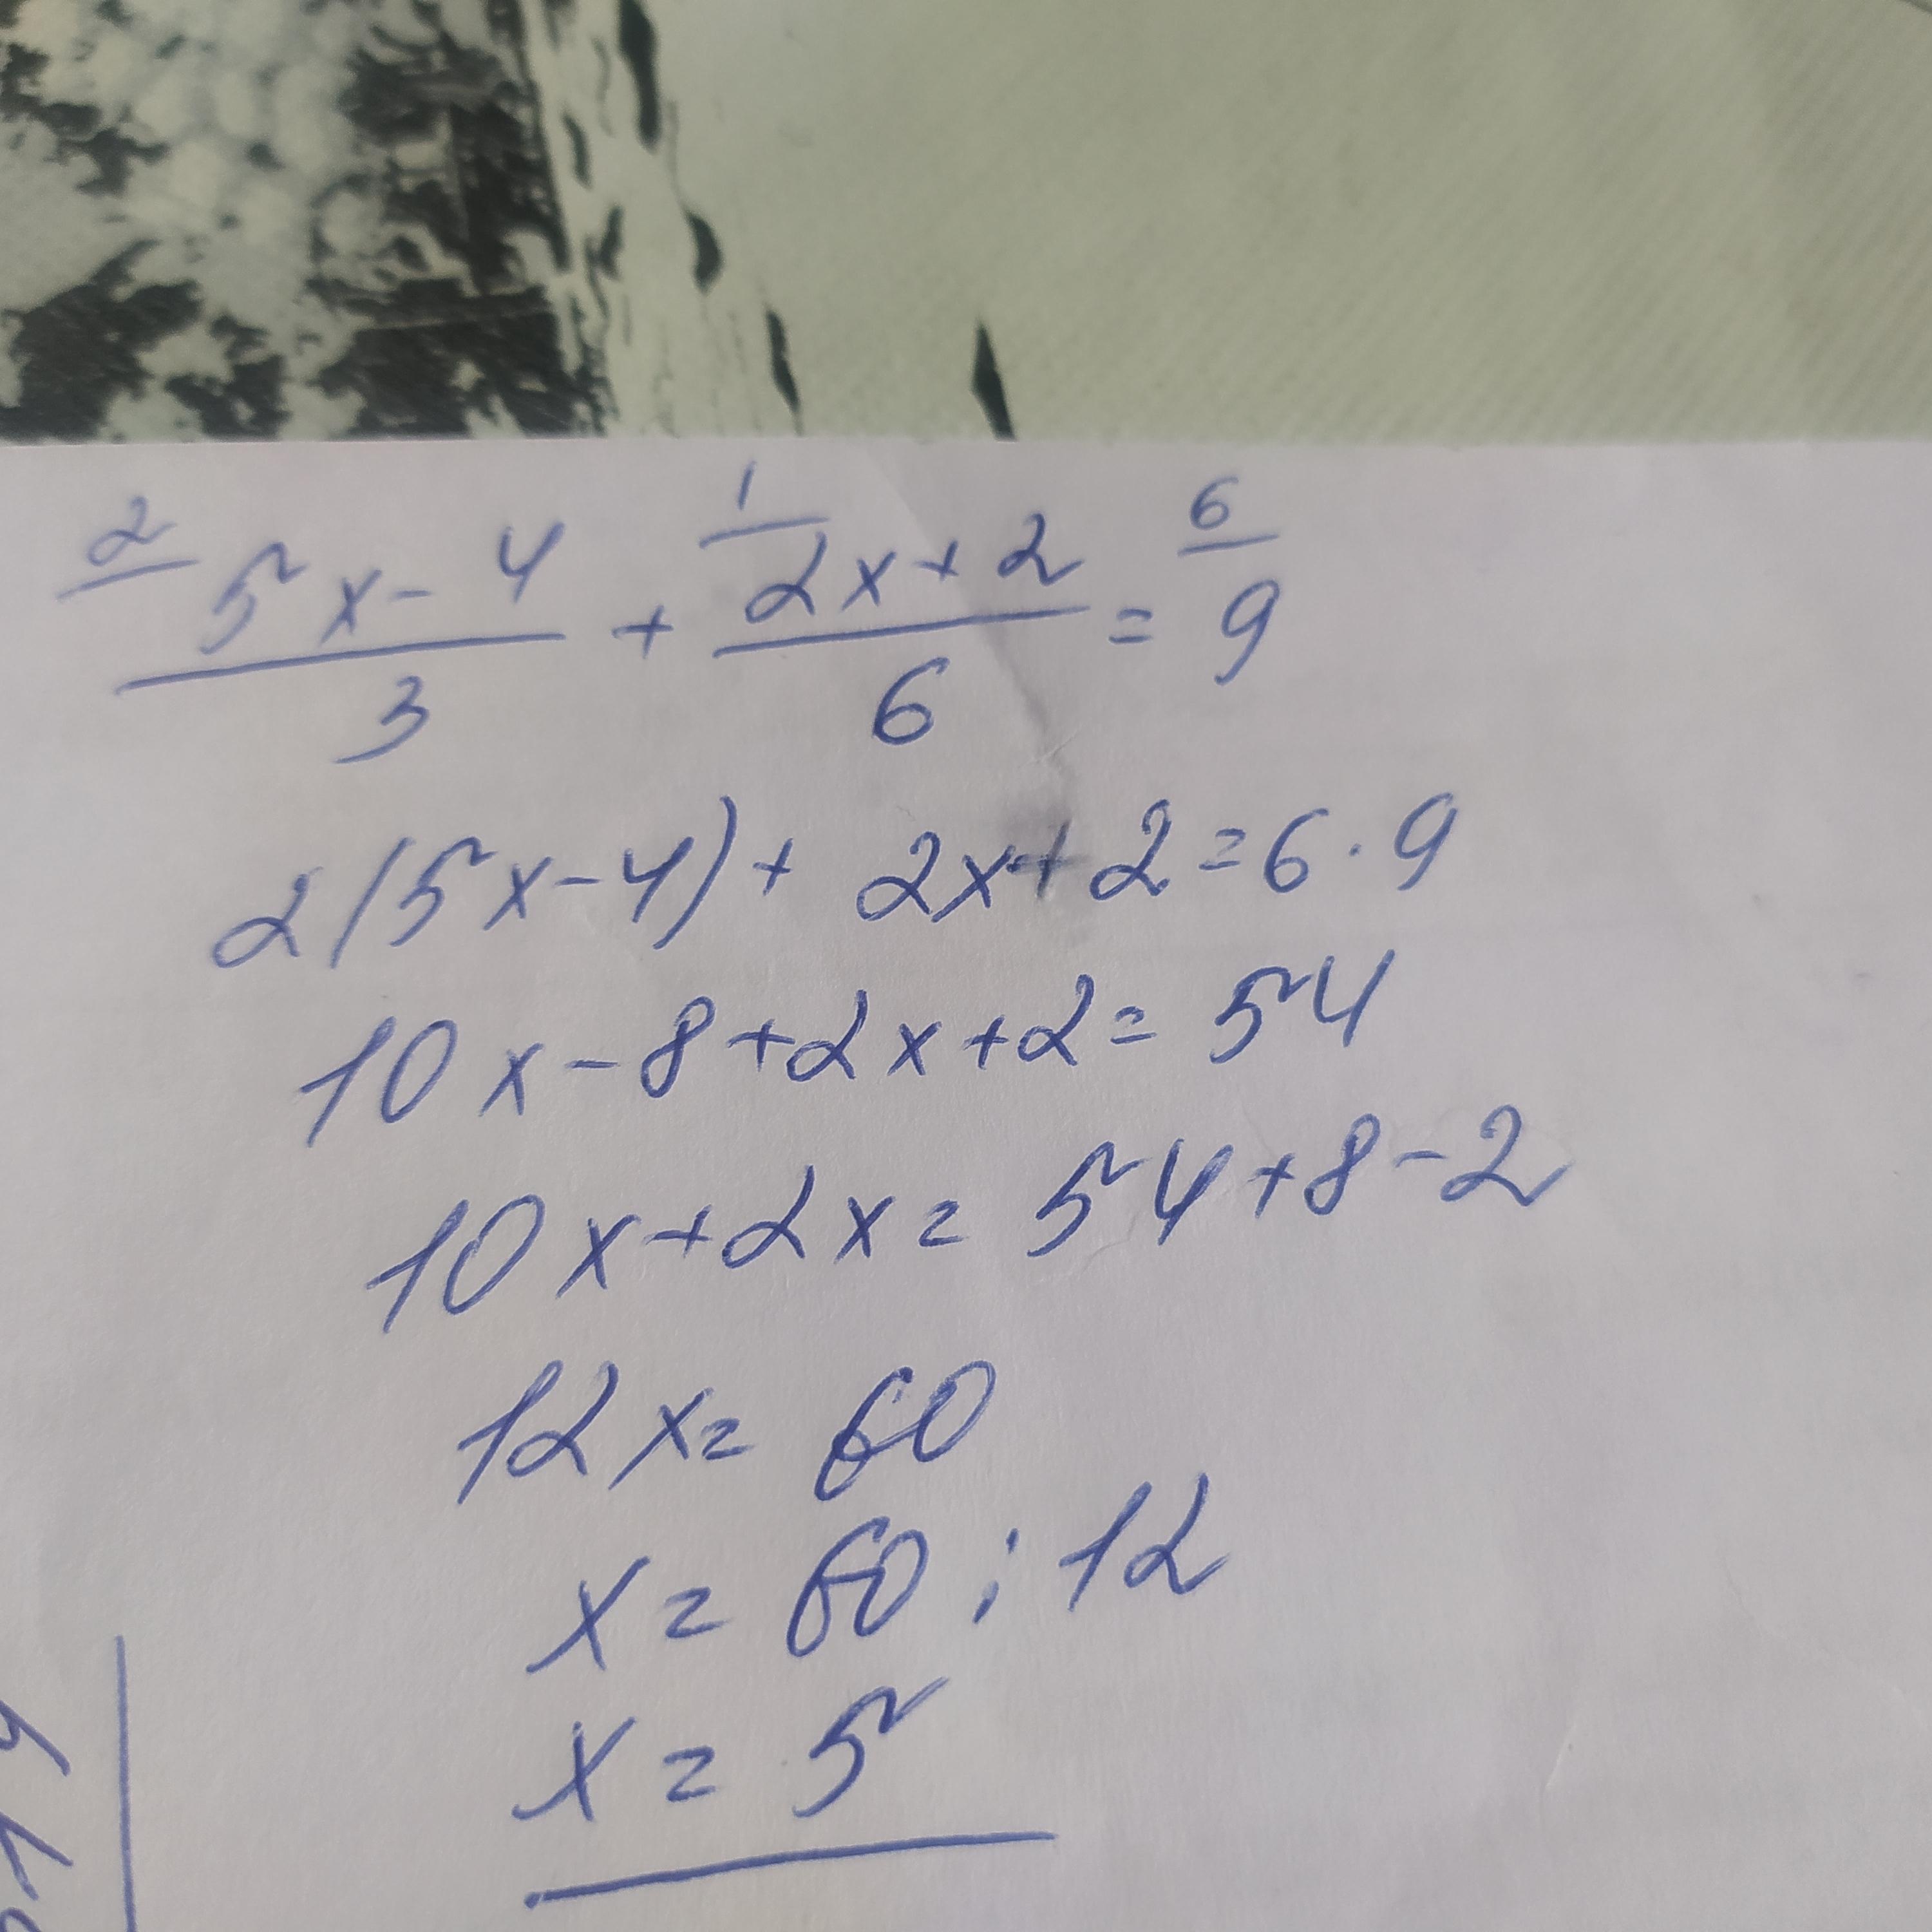 2/ (5x-4)/3 + 1/ (2x+2)/6 = 6/ 9
2(5x-4)+ 2x+2=6·9
10x-8+2x+2=54
10x+2x=54+8-2
12x=60
x=60:12
x=5